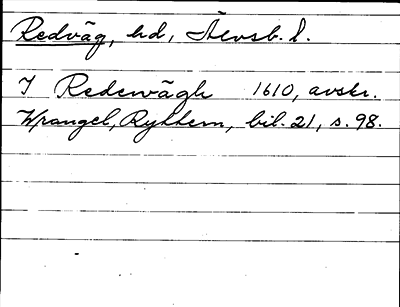 Redväg, hd, Älvsb. l.
I Redewägh 1610, avskr.
Wrangel, Ryhlem, bil. 21, s. 98.